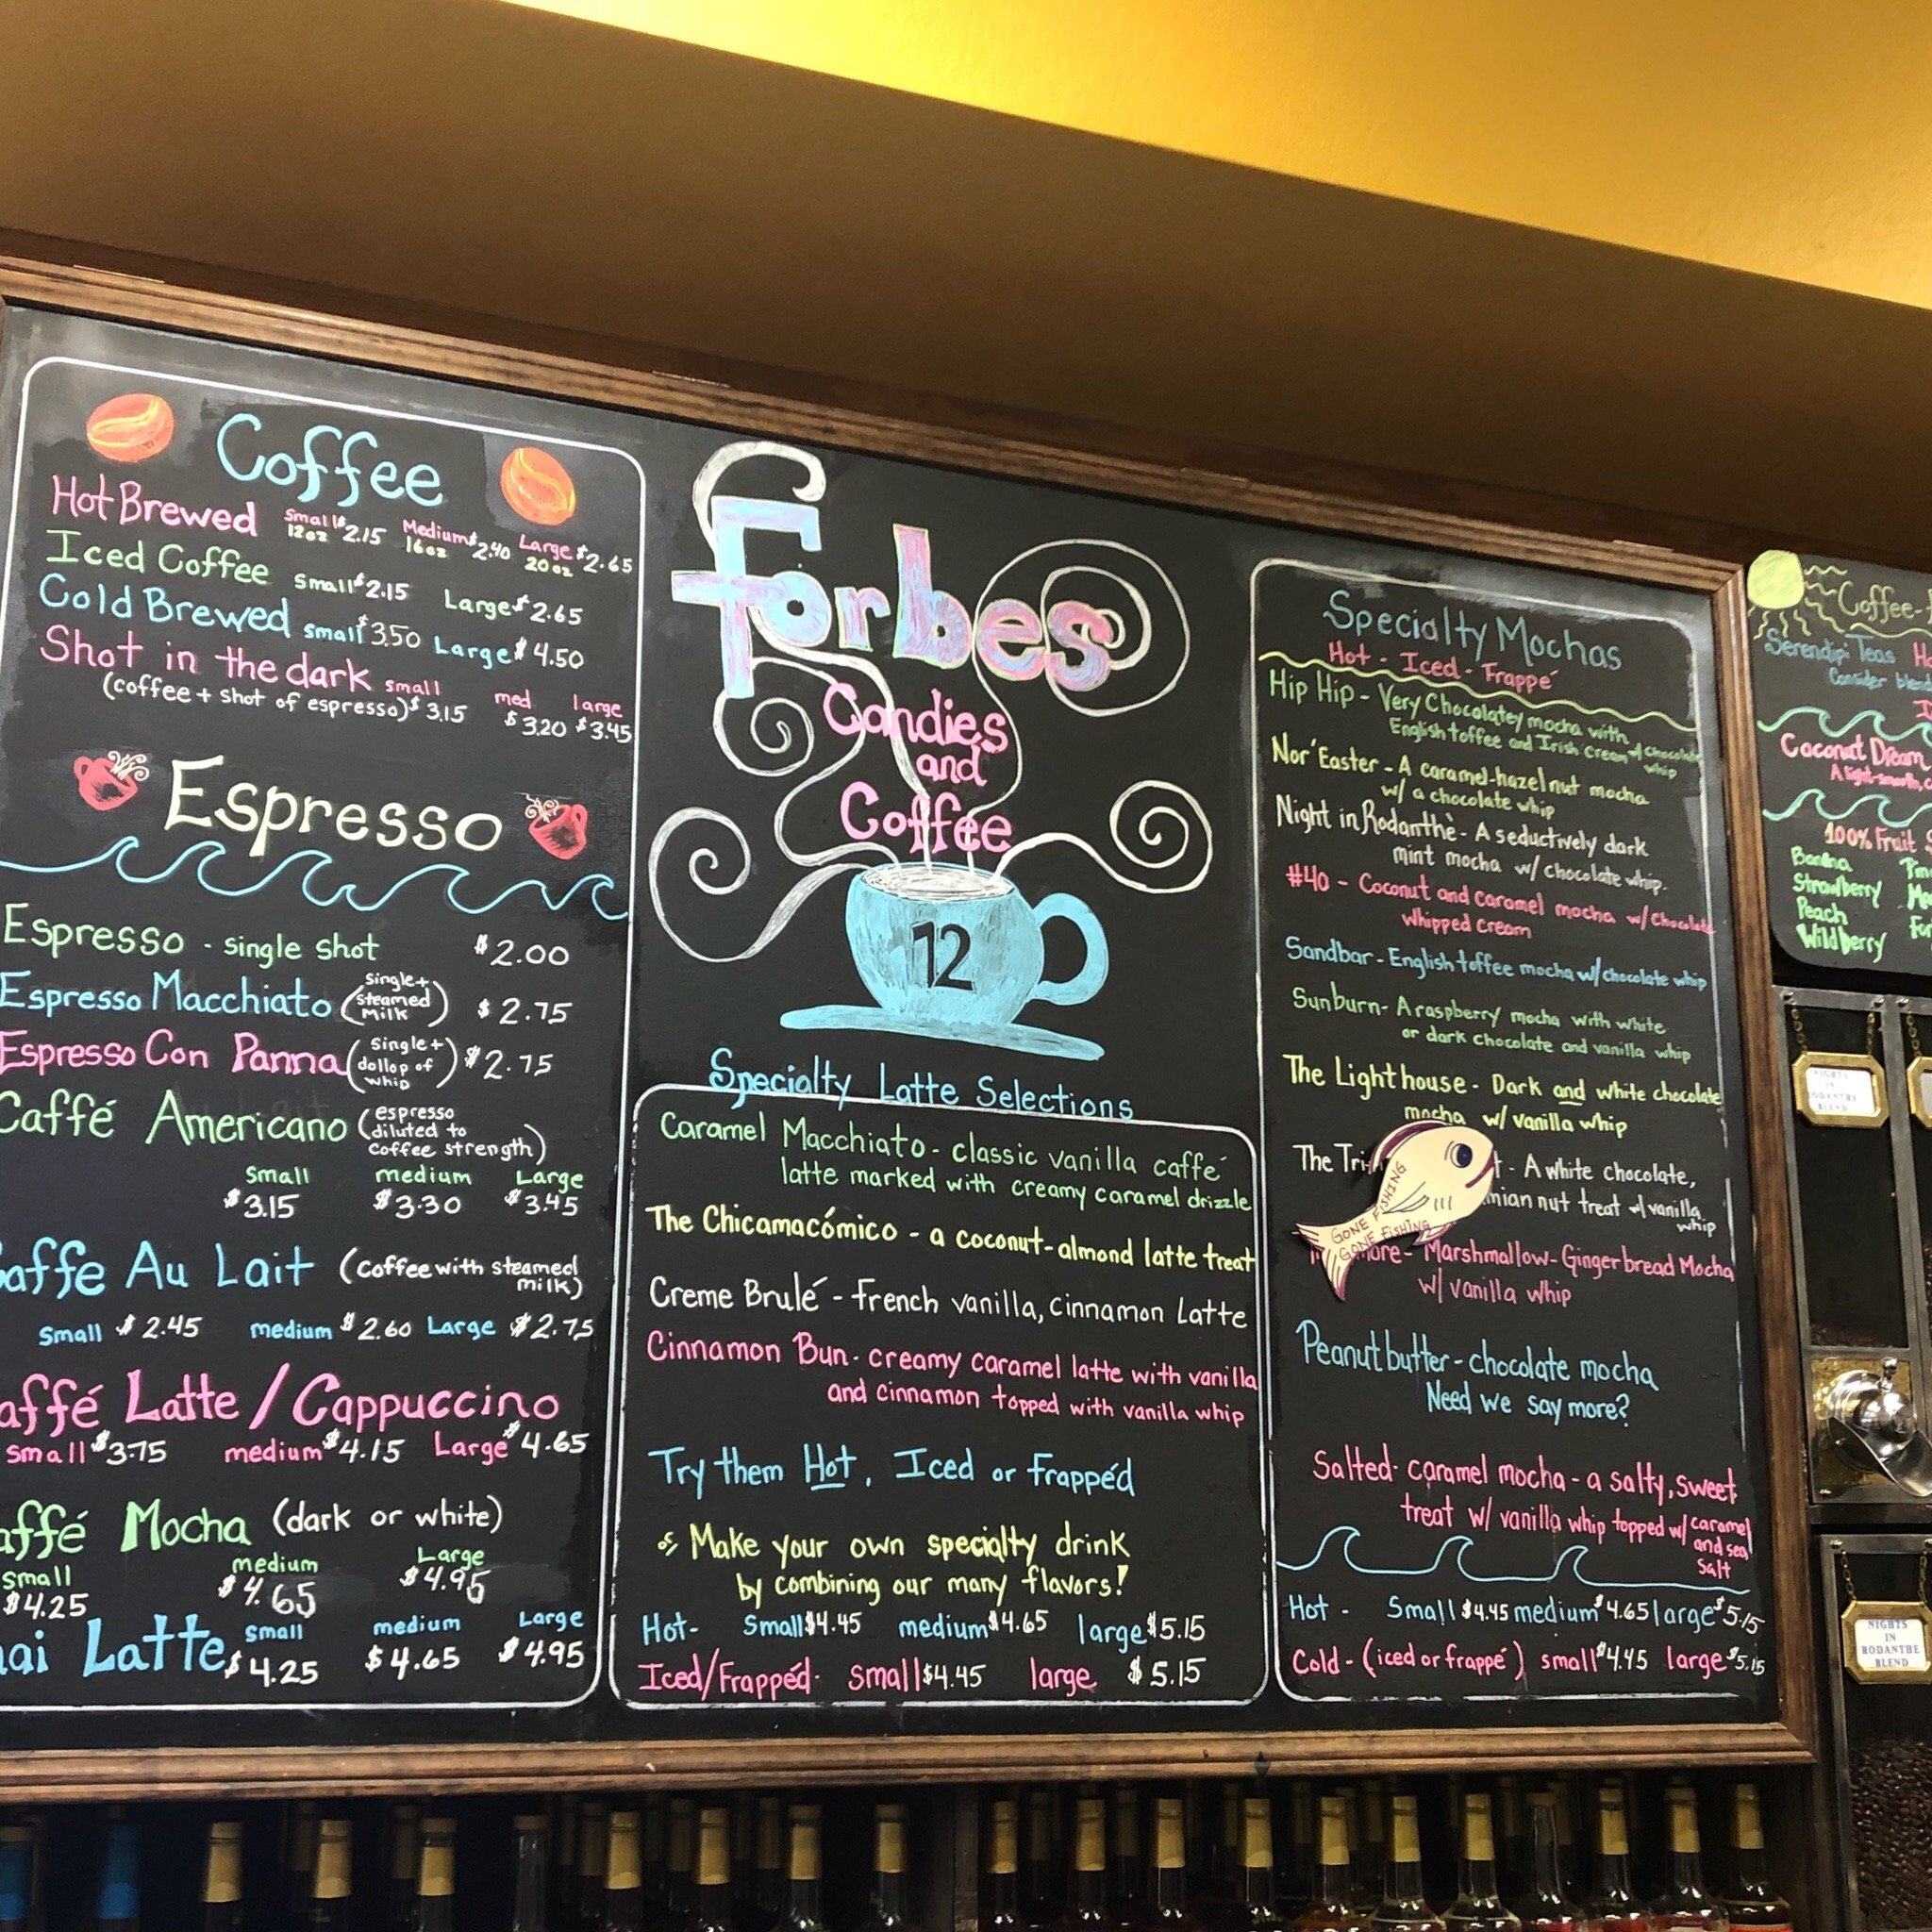 Coffee
Hot Brewed Small 12oz $2.15 Medium 16oz $2.40 Large 20oz $2.65
Iced Coffee Small $2.15 Large $2.65
Cold Brewed small $3.50 Large $4.50
Shot in the dark small med large
(coffee + shot of espresso) $3.15 $3.20 $3.45
Espresso
Espresso - single shot $2.00
Espresso Macchiato (single + steamed milk) $2.75
Espresso Con Panna (single + dollop of whip) $2.75
Caffé Americano (espresso diluted to coffee strength)
Small medium Large
$3.15 $3.30 $3.45
affe Au Lait (coffee with steamed milk)
Small $2.45 medium $2.60 Large $2.75
affé Latte / Cappuccino
small $3.75 medium $4.15 Large $4.65
affé Mocha (dark or white)
small medium Large
$4.25 $4.65 $4.95
ai Latte small medium Large
$4.25 $4.65 $4.95
Forbes
Candies
and
Coffee
12
Specialty Latte Selections
Caramel Macchiato - classic vanilla caffé
latte marked with creamy caramel drizzle
The Chicamacómico - a coconut-almond latte treat
Creme Brulé - french vanilla, cinnamon Latte
Cinnamon Bun - creamy caramel latte with vanilla
and cinnamon topped with vanilla whip
Try them Hot, Iced or Frappéd
or Make your own specialty drink
by combining our many flavors!
Hot- Small $4.45 medium $4.65 large $5.15
Iced/Frappéd- small $4.45 large $5.15
Specialty Mochas
Hot - Iced - Frappé
Hip Hip - Very Chocolatey mocha with
English toffee and Irish Cream w/ chocolate
whip
Nor'Easter - A caramel-hazelnut mocha
w/ a chocolate whip
Night in Rodanthè - A seductively dark
mint mocha w/ chocolate whip.
#40 - Coconut and caramel mocha w/ chocolate
whipped cream
Sandbar - English toffee mocha w/ chocolate whip
Sunburn - A raspberry mocha with white
or dark chocolate and vanilla whip
The Lighthouse - Dark and white chocolate
mocha w/ vanilla whip
The Tri t - A white chocolate,
mian nut treat w/ vanilla
whip
GONE FISHING
GONE FISHING
more - Marshmallow-Gingerbread Mocha
w/ vanilla whip
Peanutbutter - chocolate mocha
Need we say more?
Salted-caramel mocha - a salty, sweet
treat w/ vanilla whip topped w/ caramel
and sea
salt
Hot - Small $4.45 medium $4.65 large $5.15
Cold - (iced or frappé) small $4.45 large $5.15
Coffee-
Serendipi Teas
Consider
Coconut Dream
100% Fruit
Banana
Strawberry
Peach
Wildberry
NIGHTS
IN
RODANTHE
BLEND
NIGHTS
IN
RODANTHE
BLEND